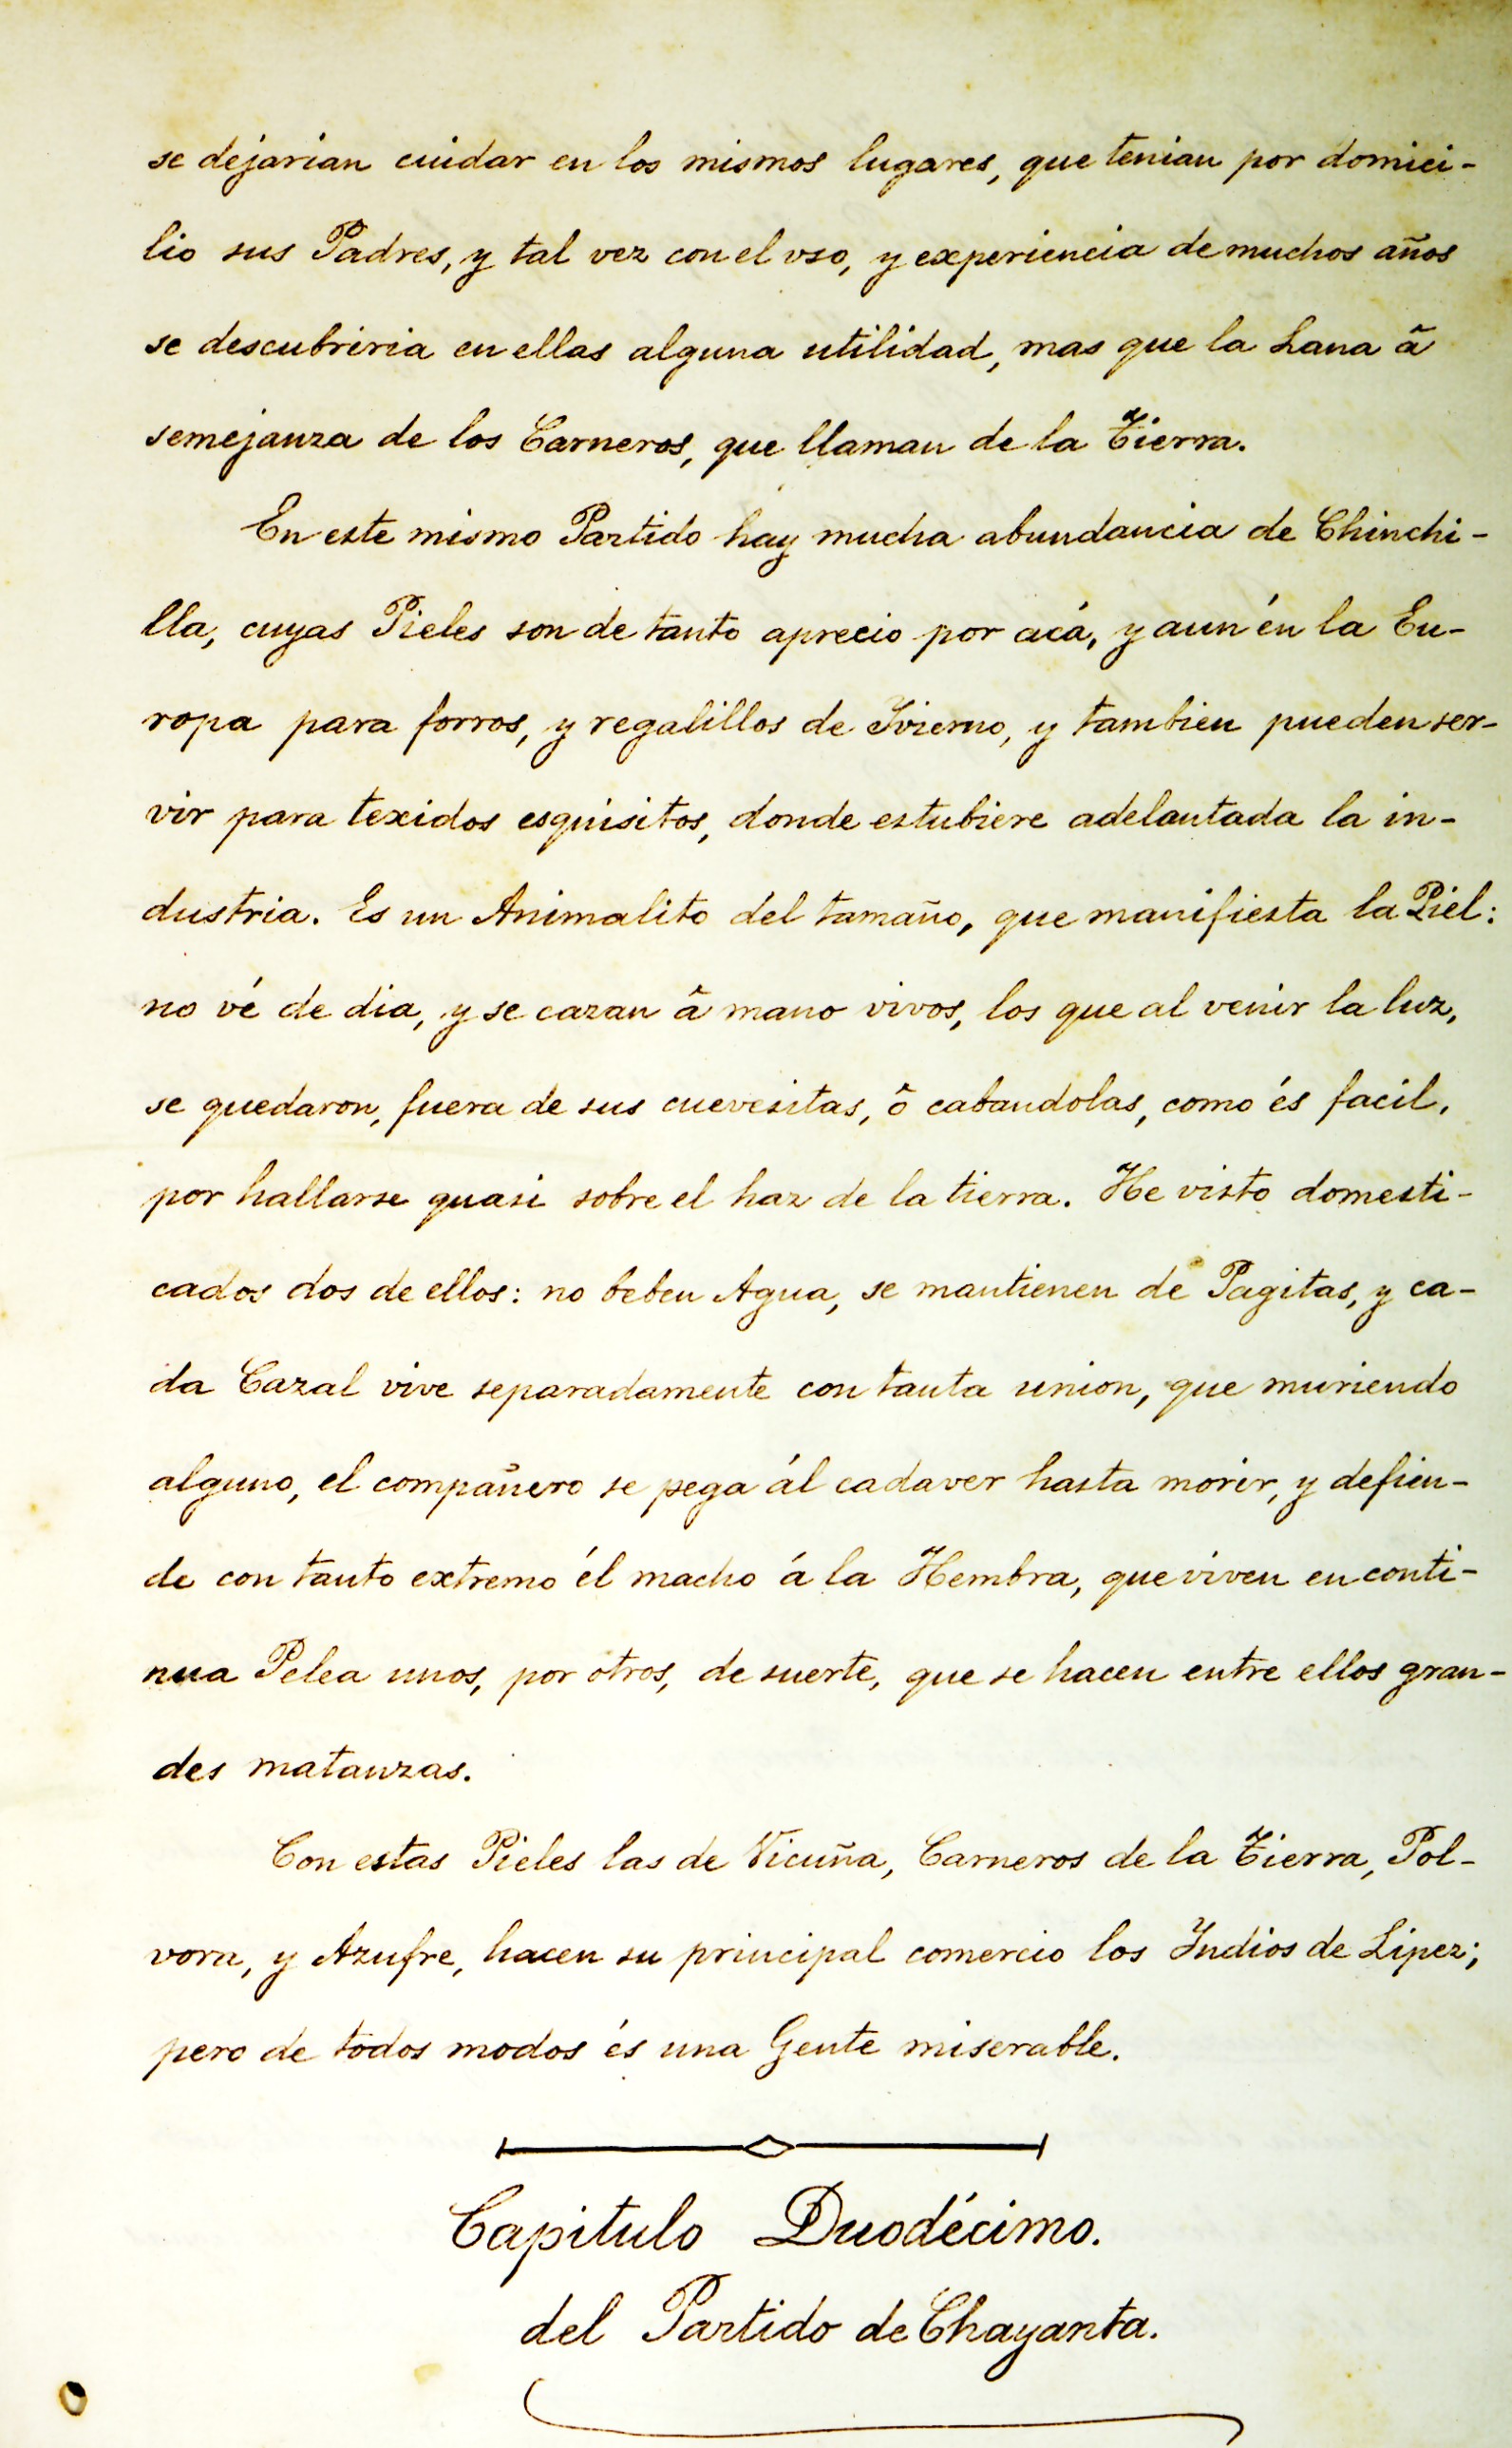 se dejarian cuidar en los mismos lugares, que tenian por domici-
lio sus Padres, y tal vez con el vso, y experiencia de muchos años
se descubriria en ellas alguna utilidad, mas que la Lana â
semejanza de los Carneros, que llaman de la Tierra.
En este mismo Partido hay mucha abundancia de Chinchi-
lla, cuyas Pieles son de tanto aprecio por acá, y aun én la Eu-
ropa para forros, y regalillos de Ivierno, y tambien pueden ser-
vir para texidos esquisitos, donde estubiere adelantada la in-
dustria. Es un Animalito del tamaño, que manifiesta la Piel:
no vé de dia, y se cazan â mano vivos, los que al venir la luz,
se quedaron, fuera de sus cuevesitas, ô cabandolas, como és facil,
por hallarse quasi sobre el haz de la tierra. He visto domesti-
cados dos de ellos: no beben Agua, se mantienen de Pagitas, y ca-
da Cazal vive separadamente con tanta union, que muriendo
alguno, el compañero se pega ál cadaver hasta morir, y defien-
de con tanto extremo él macho á la Hembra, que viven en conti-
nua Pelea unos, por otros, de suerte, que se hacen entre ellos gran-
des matanzas.
Con estas Pieles las de Vicuña, Carneros de la Tierra, Pol-
vora, y Azufre, hacen su principal comercio los Indios de Lipez;
pero de todos modos és una Gente miserable.
Capitulo Duodécimo.
del Partido de Chayanta.